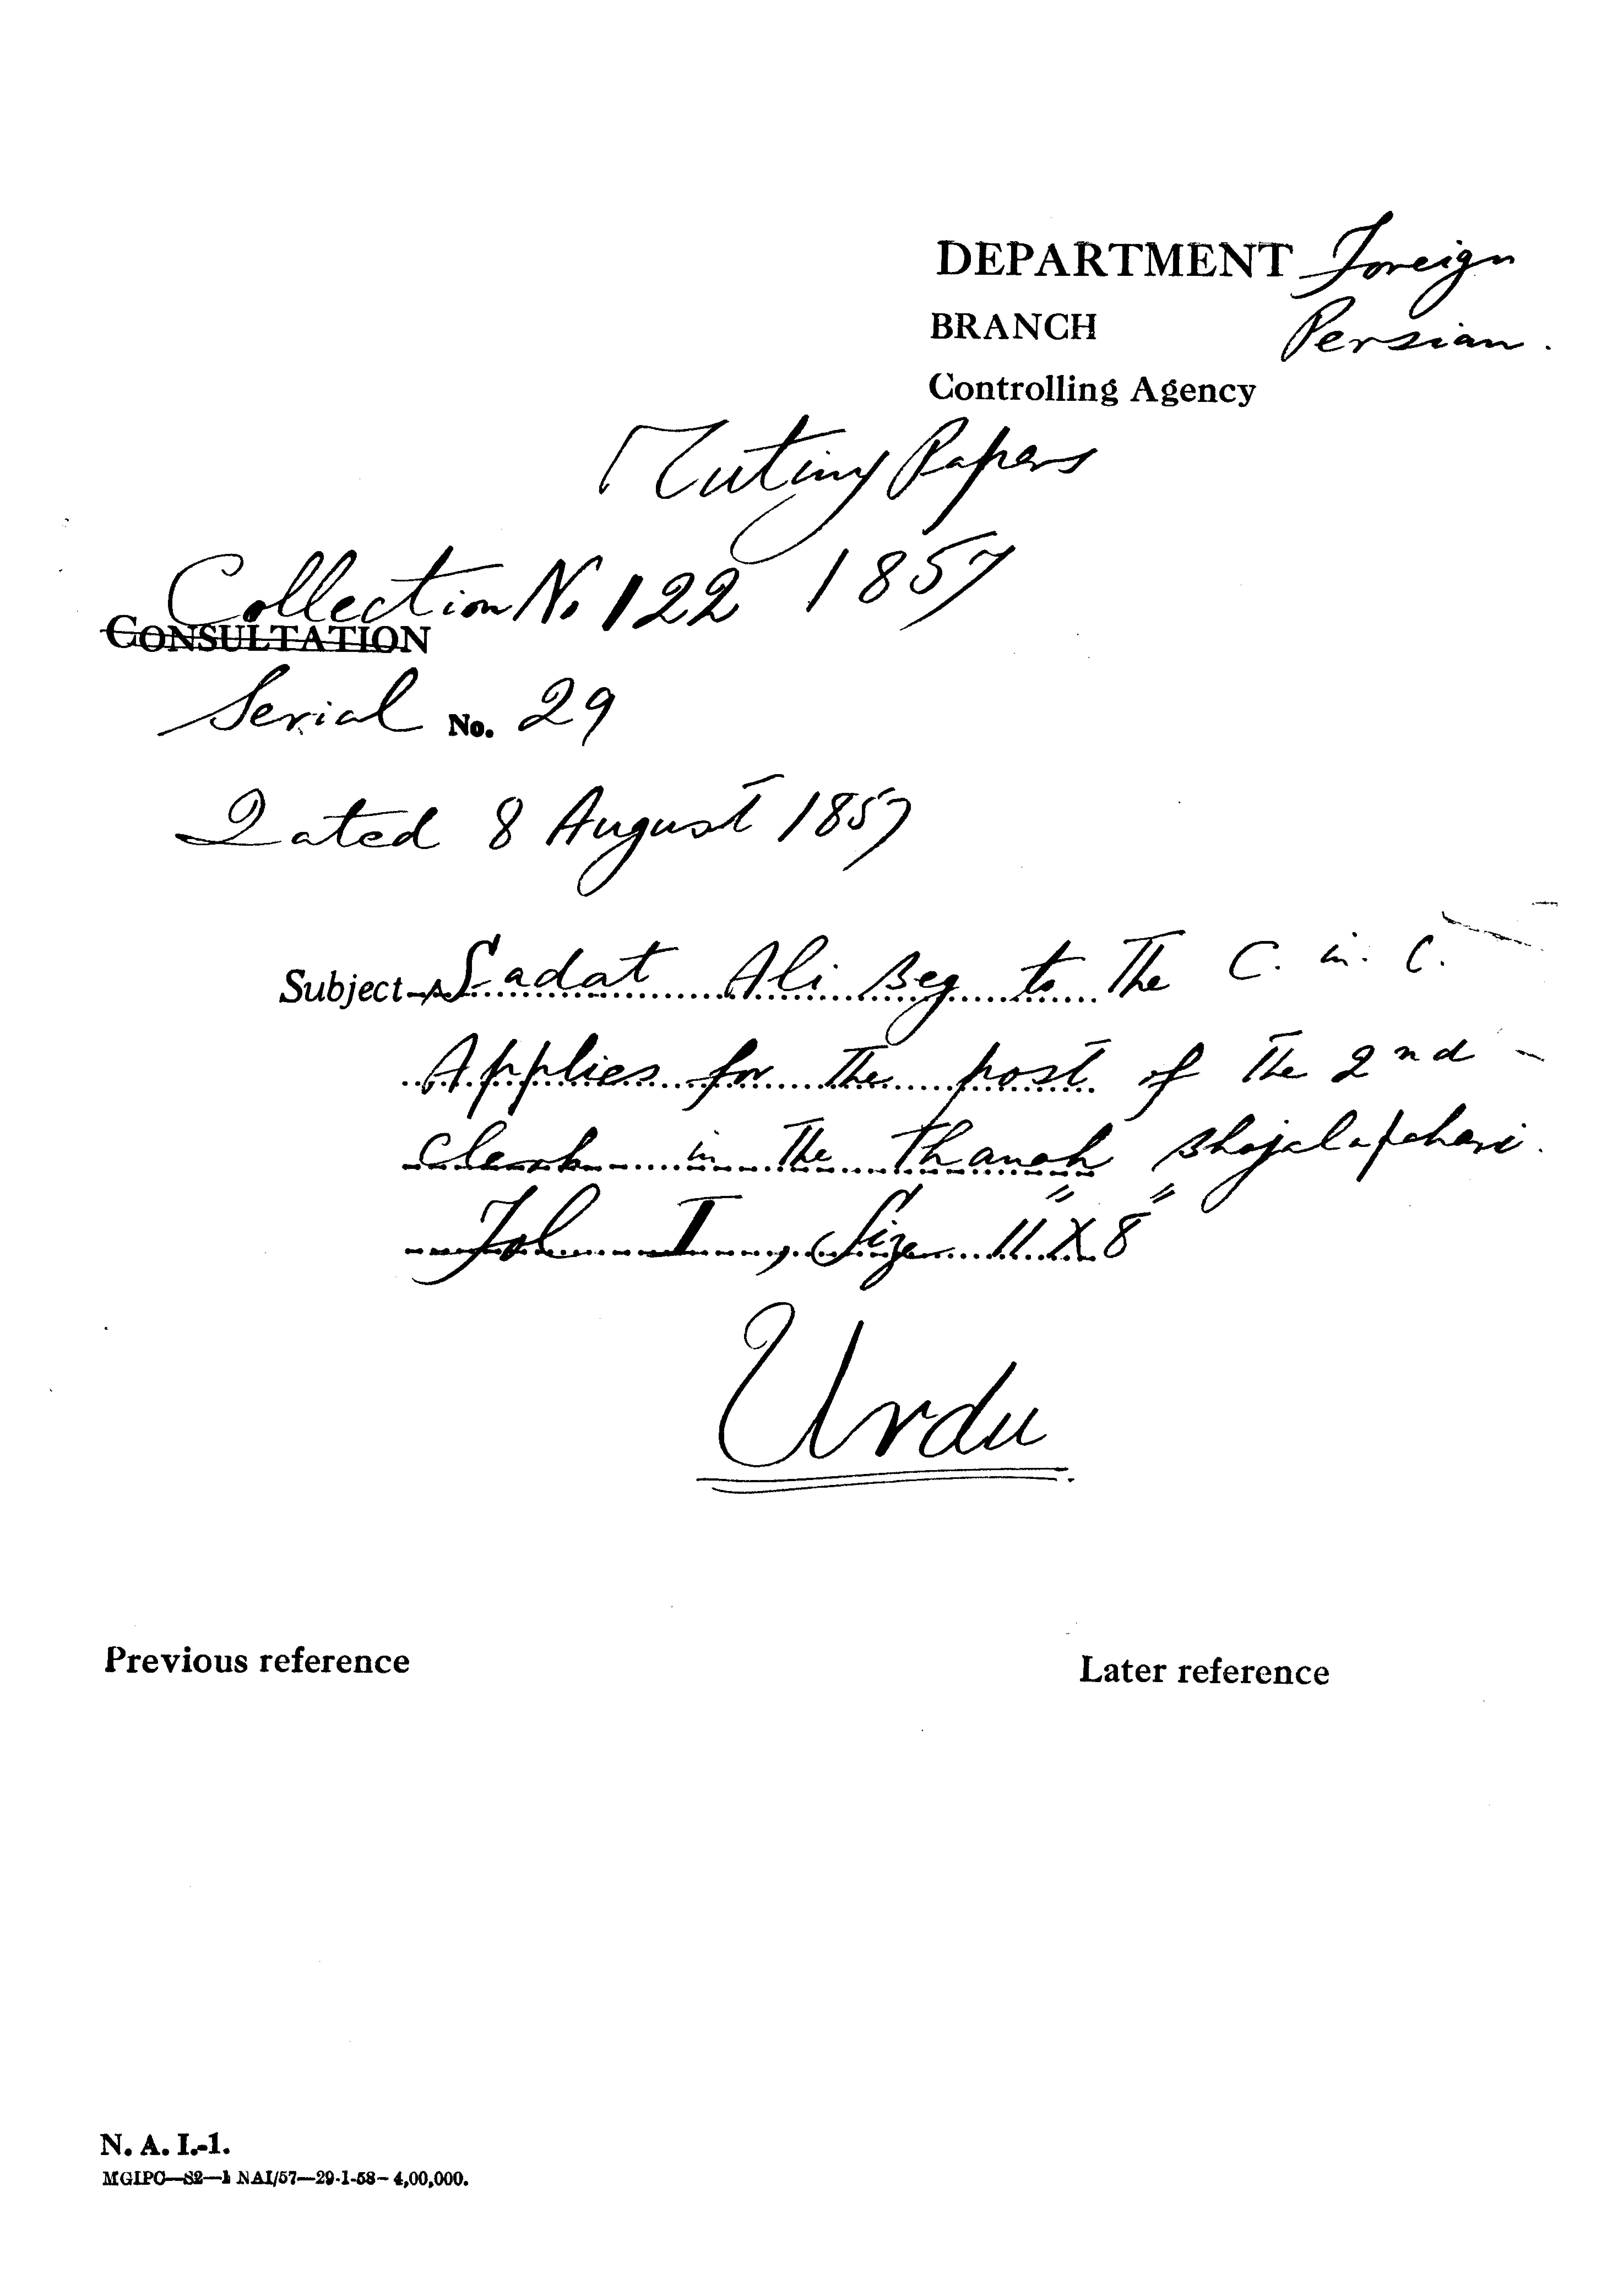 DEPARTMENT Foreign
BRANCH Persian.
Controlling Agency
Mutiny Papers
Collection No 122 1857
CONSULTATION
Serial No. 29
Dated 8 August 1857
Subject- Sadat Ali Beg to The C. in. C.
Applies for The post of The 2nd -
clerk in The Thanah
Fol I, Size 11" X 8"
Urdu
Previous reference
Later reference
N. A. I.-1.
MGIPC—S2—1 NAI/57—29-1-58—4,00,000.